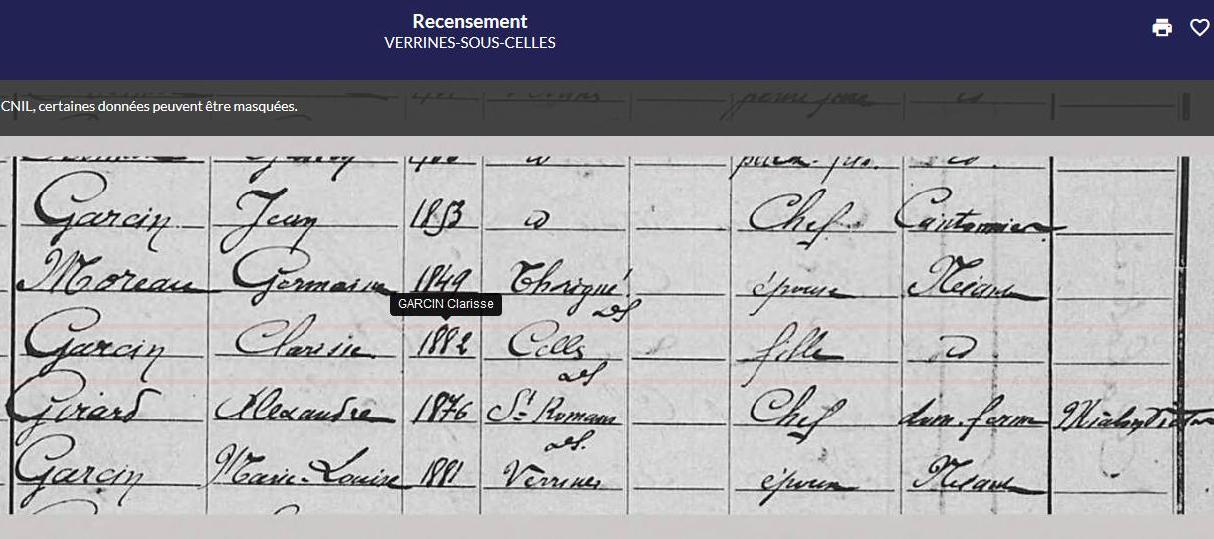 Recensement
VERRINES-SOUS-CELLES
CNIL, certaines données peuvent être masquées.
Garcin Jean 1853 d Chef Cantonnier
Moreau Germaine 1849 Thorigné épouse Néant
GARCIN Clarisse
DS
Garcin Clarisse 1882 Celles fille d
DS
Girard Alexandre 1876 St Romans Chef dom. ferm
DS.
Garcin Marie-Louise 1881 Verrines épouse Néant